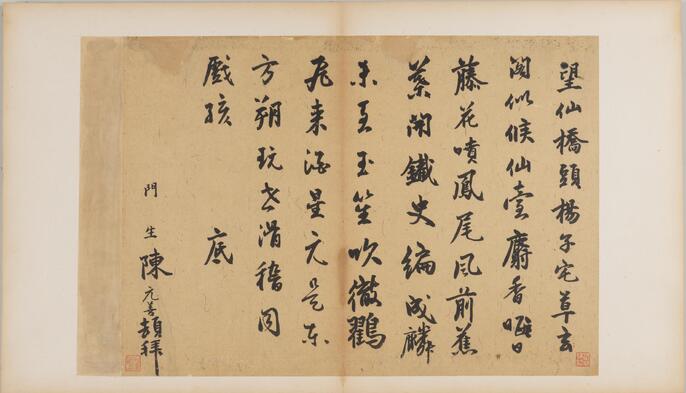 望仙橋頭楊子宅草玄
閣似候仙臺麝香日
藤花噴鳳尾風前蕉
葉開鐵史編成麟
未至玉笙吹徹鸛
飛来酒星元是東
方朔玩世滑稽同
戲孩 底
門生陳元善頓拜